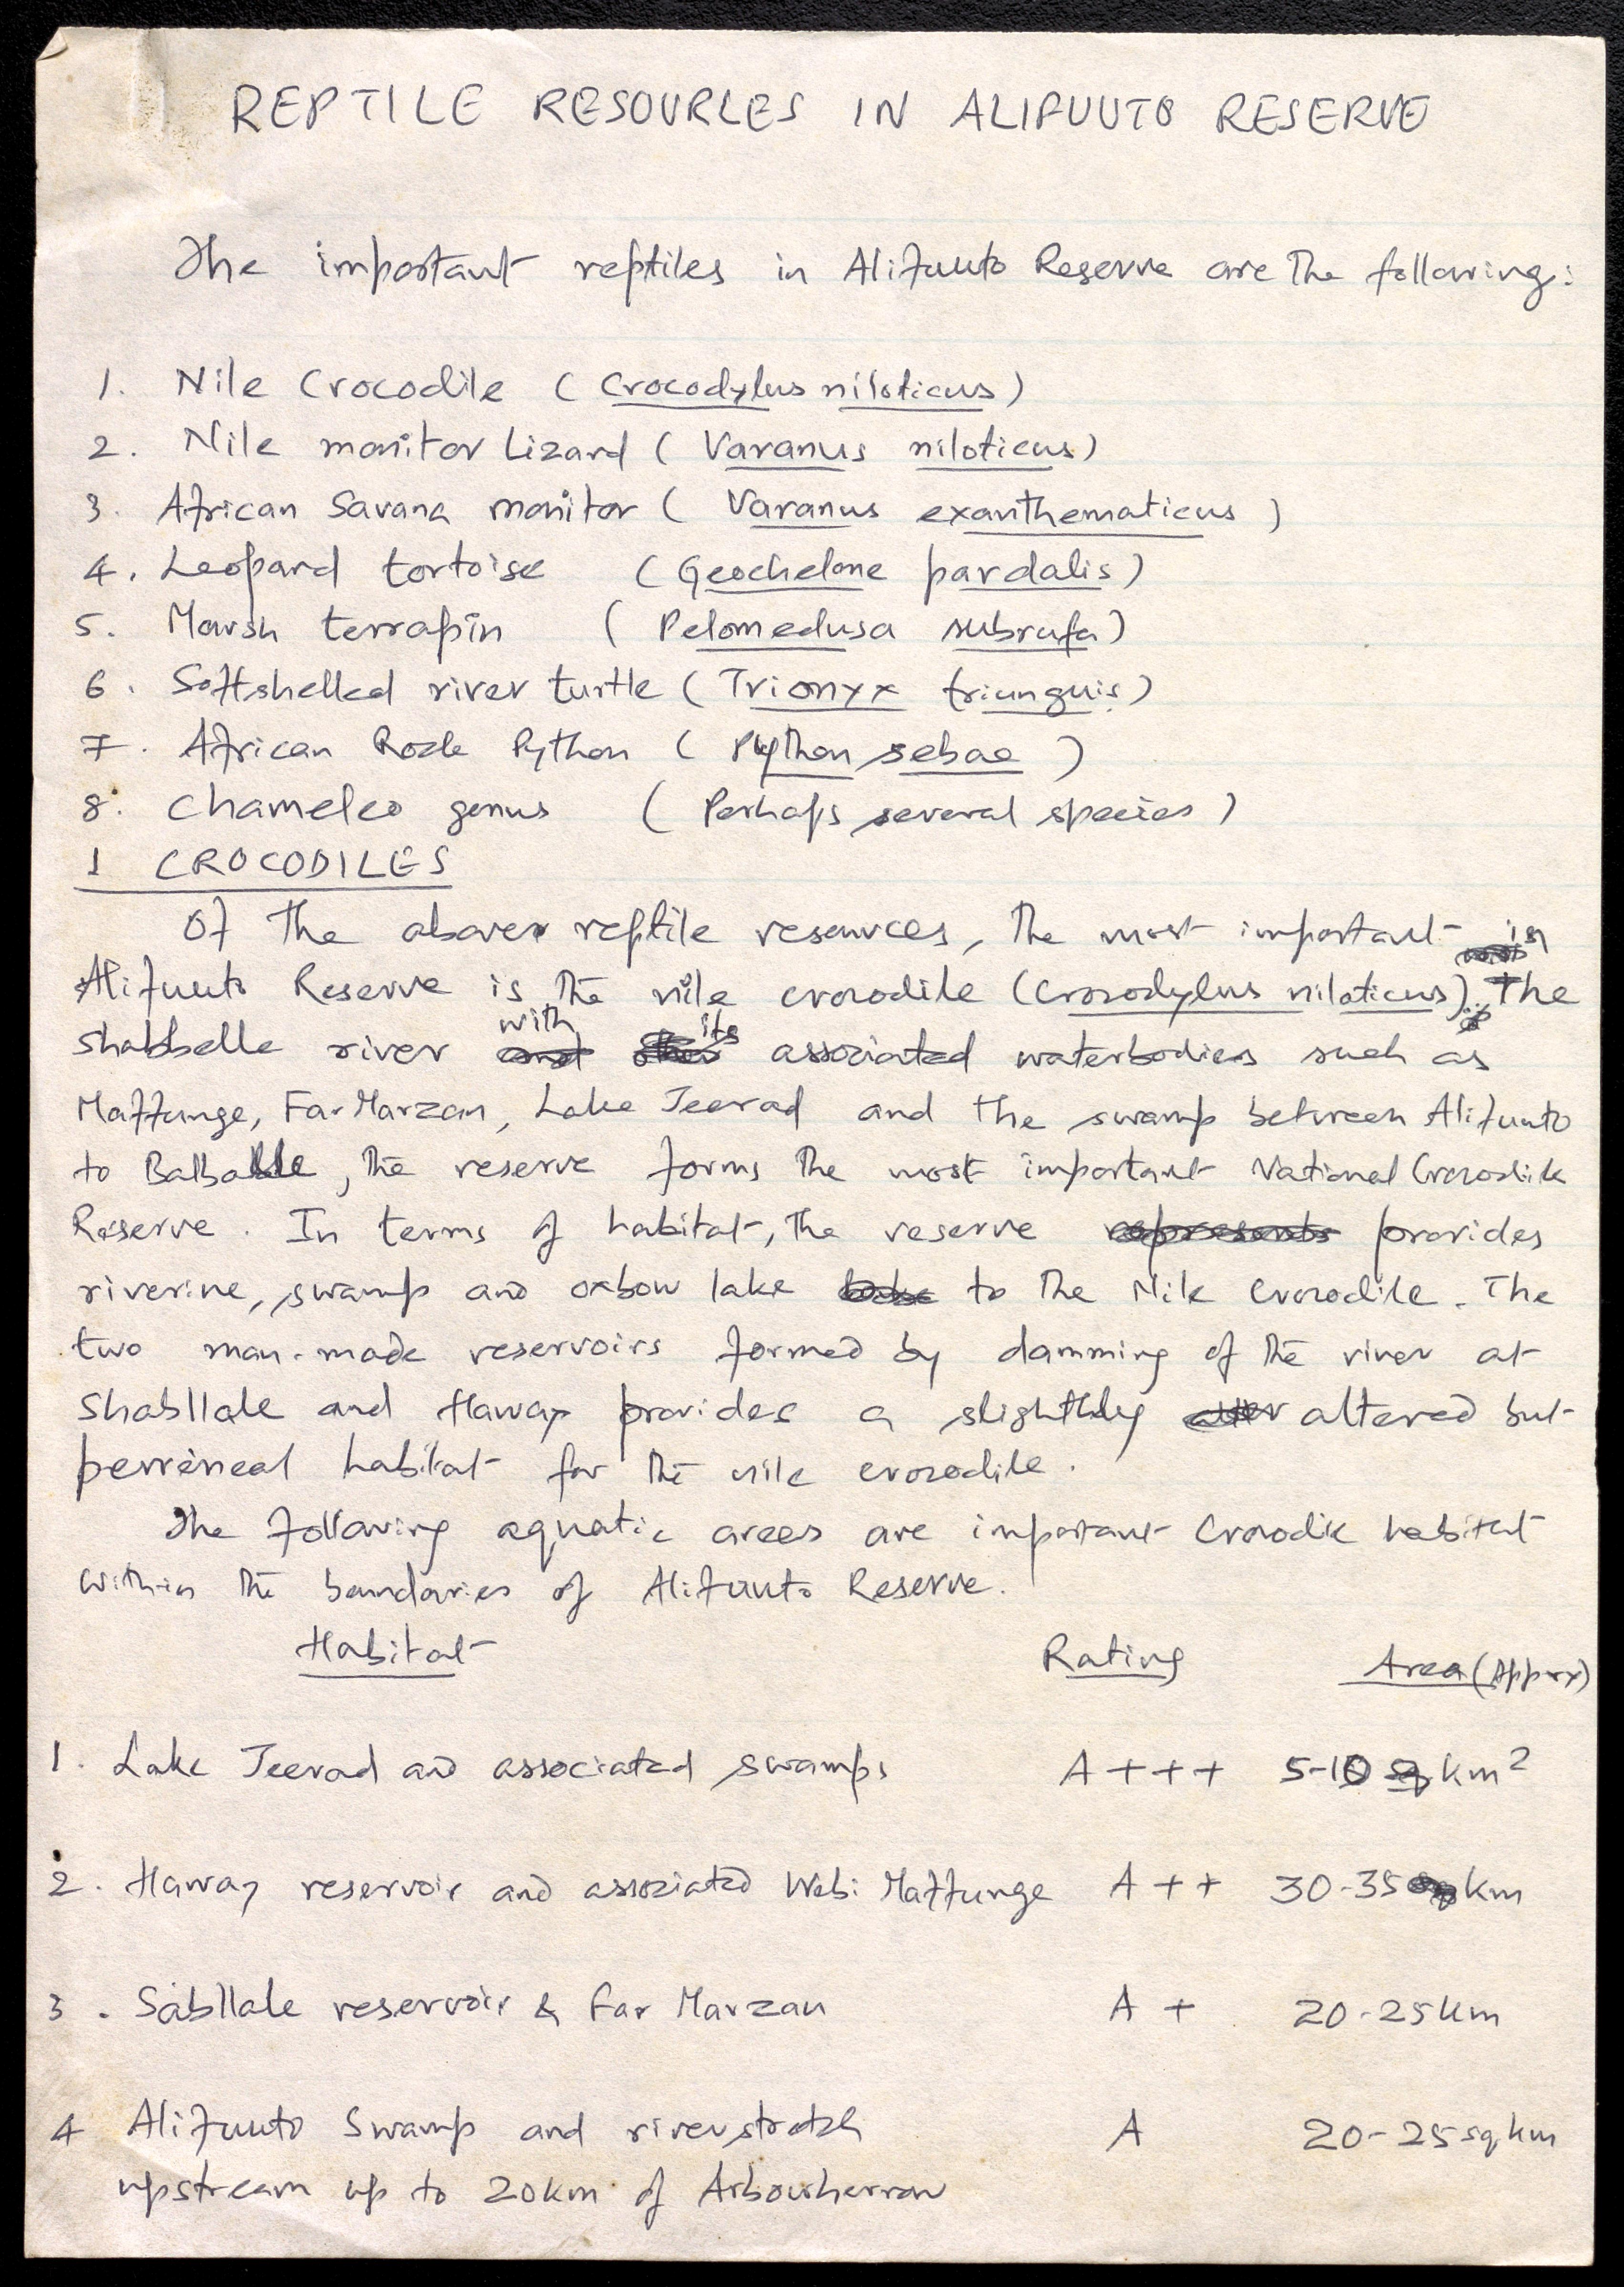 REPTILE RESOURCES IN ALIFUUTO RESERVE
The important reptiles in Alifuuto Reserve are the following:
1. Nile Crocodile (Crocodylus niloticus)
2. Nile monitor Lizard (Varanus niloticus)
3. African Savana monitor (Varanus exanthematicus)
4. Leopard tortoise (Geochelone pardalis)
5. Marsh terrapin (Pelomedusa subrufa)
6. Softshelled river turtle (Trionyx triunguis)
7. African Rock Python (Python sebae)
8. Chameleo genus (Perhaps several species)
1 CROCODILES
Of the above reptile resources, the most important in
Alifuuto Reserve is the nile crocodile (Crocodylus niloticus). The
Shabbelle river with its associated waterbodies such as
Maffunge, Far Marzan, Lake Jeerad and the swamp between Alifuuto
to Balballe, the reserve forms the most important National Crocodile
Reserve. In terms of habitat, the reserve represents provides
riverine, swamp and oxbow lake to the Nile crocodile. The
two man-made reservoirs formed by damming of the river at
Shabllale and Haway provides a slighthly altered but
perreneal habitat for the nile crocodile.
The following aquatic arees are important Crocodile habitat
within the boundaries of Alifuuto Reserve.
Habitat Rating Area (Apprx)
1. Lake Jeerad and associated swamps A+++ 5-10 sq km²
2. Haway reservoir and associated Webi Maffunge A++ 30-35 km
3. Sabllale reservoir & Far Marzan A+ 20-25 km
4 Alifuuto Swamp and river stretch A 20-25 sq km
upstream up to 20km of Arbowherrow